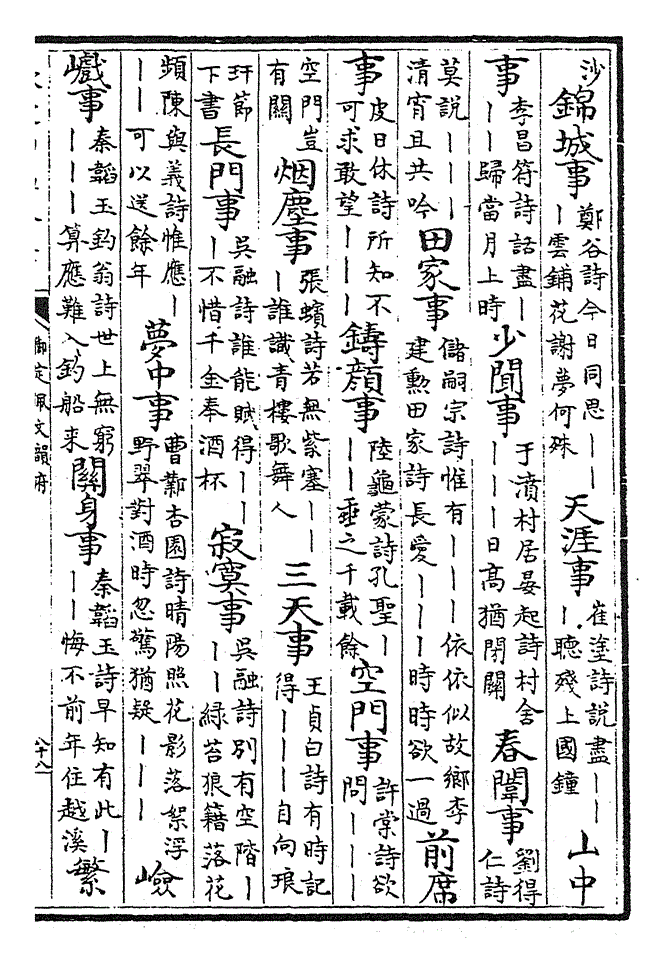 沙錦城事鄭谷詩今日同思丨丨丨雲鋪花謝夢何殊天涯事崔塗詩説盡丨丨丨聽殘上國鐘山中
事李昌符詩話盡丨丨丨歸當月上時少聞事于濆村居晏起詩村舍丨丨丨日高猶閉關春闈事劉得仁詩
莫説丨丨丨清宵且共吟田家事儲嗣宗詩惟有丨丨丨依依似故鄉李建勲田家詩長愛丨丨丨時時欲一過前席
事皮日休詩所知不可求敢望丨丨丨鑄顏事陸龜蒙詩孔聖丨丨丨垂之千載餘空門事許棠詩欲問丨丨丨
空門豈有關烟塵事張蠙詩若無紫塞丨丨丨誰識青樓歌舞人三天事王貞白詩有時記得丨丨丨自向琅
玕節下書長門事吳融詩誰能賦得丨丨丨不惜千金奉酒杯寂寞事吳融詩別有空階丨丨丨綠苔狼籍落花
頻陳與義詩惟應丨丨丨可以送餘年夢中事曹鄴杏園詩晴陽照花影落絮浮野翠對酒時忽驚猶疑丨丨丨嶮
巇事秦韜玉釣翁詩世上無窮丨丨丨算應難入釣船來關身事秦韜玉詩早知有此丨丨丨悔不前年住越溪繁
御定佩文韻府
八十八